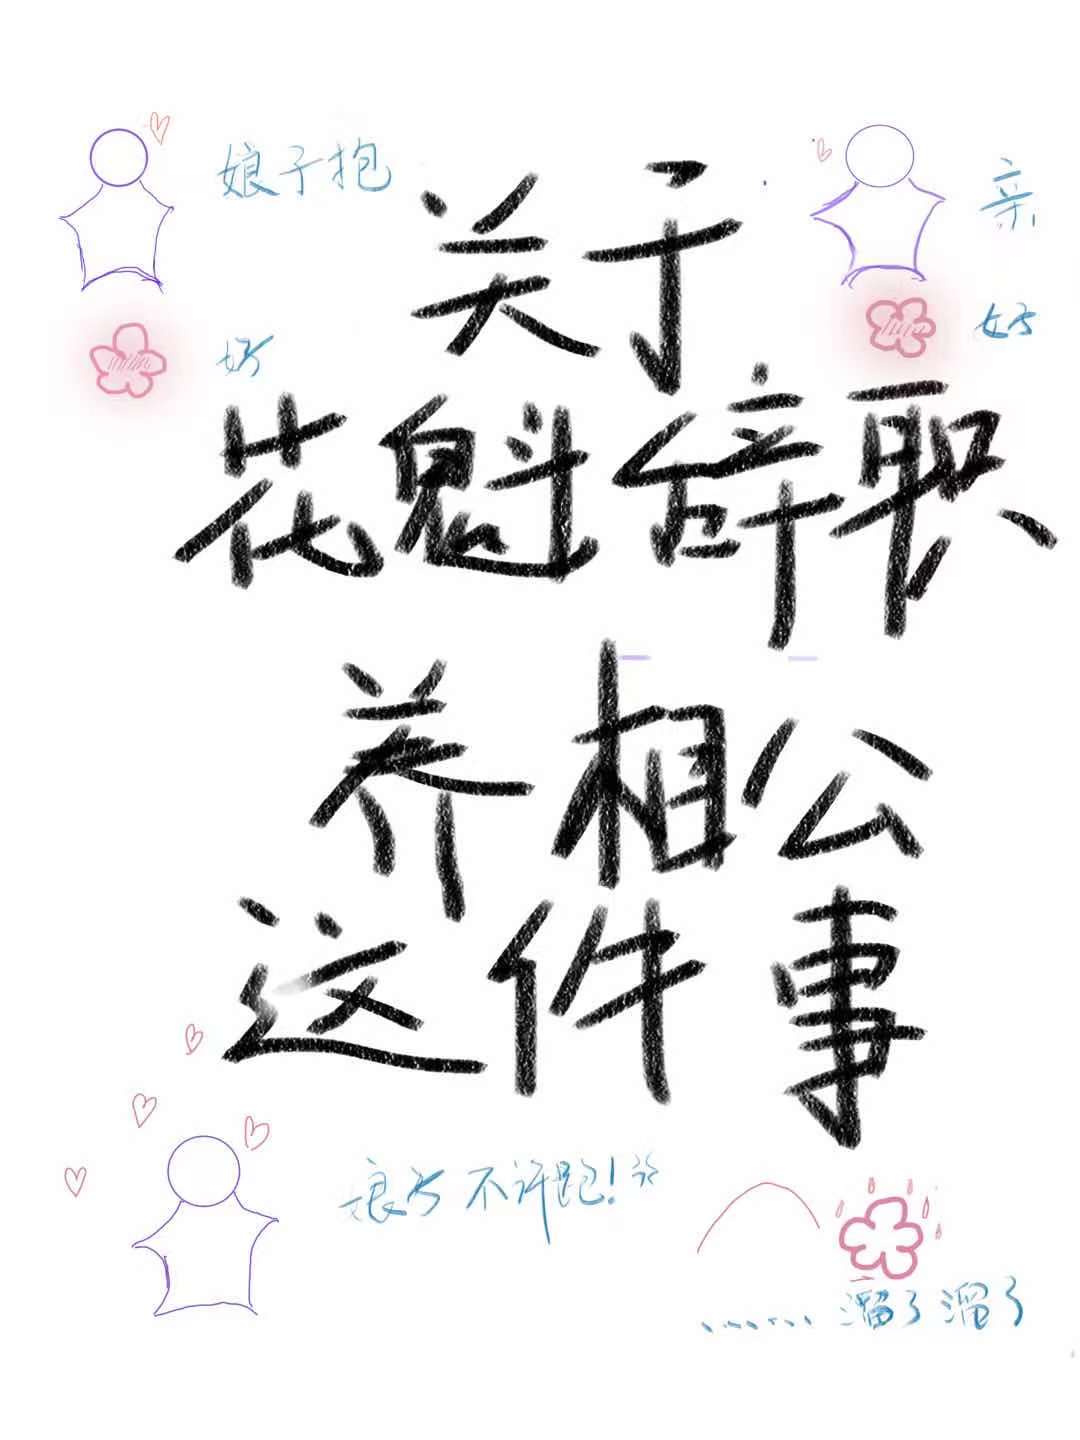 娘子抱
亲
好
好
关于
花魁辞职
养相公
这件事
娘子不许跑!
......溜了溜了